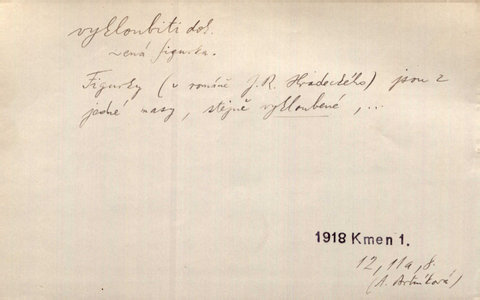 vykloubiti dok.
zená figurka.
Figurky (v románě J. R. Hradeckého) jsou z
jedné masy, stejně vykloubené, ...
1918 Kmen 1.
12, 11a, 8.
(A.